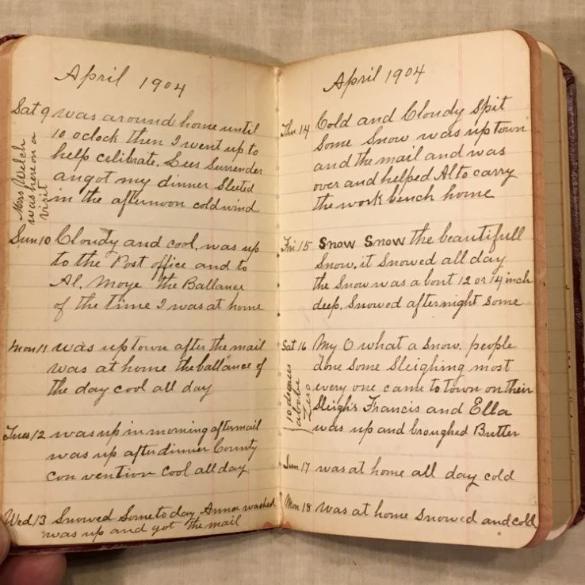 April 1904
Sat 9 was around home until
10 oclock then I went up to
help celibrate. Lees Surrender
an got my dinner Sleeted
in the afternoon cold wind
Mrs Welch
was here on a
visit
Sun 10 Cloudy and cool, was up
to the Post office and to
Al. Moye the Ballance
of the time I was at home
Mon 11 was up town after the mail
was at home the ballance of
the day cool all day
Tues 12 was up in morning after mail
was up after dinner County
convention Cool all day
Wed 13 Snowed Some to day Anna washed
was up and got the mail
April 1904
Thu 14 Cold and Cloudy Spit
Some Snow was up town
and the mail and was
over and helped Al to carry
the work bench home
Fri 15. Snow Snow the beautifull
Snow, it Snowed all day
the Snow was a bout 12 or 14 inch
deep, Snowed afternight Some
Sat 16 My O what a Snow. people
done Some Sleighing most
every one came to town on their
Sleighs Francis and Ella
was up and broughed Butter
10 degrees
above
Zero
Sun 17 was at home all day cold
Mon 18 was at home Snowed and cold